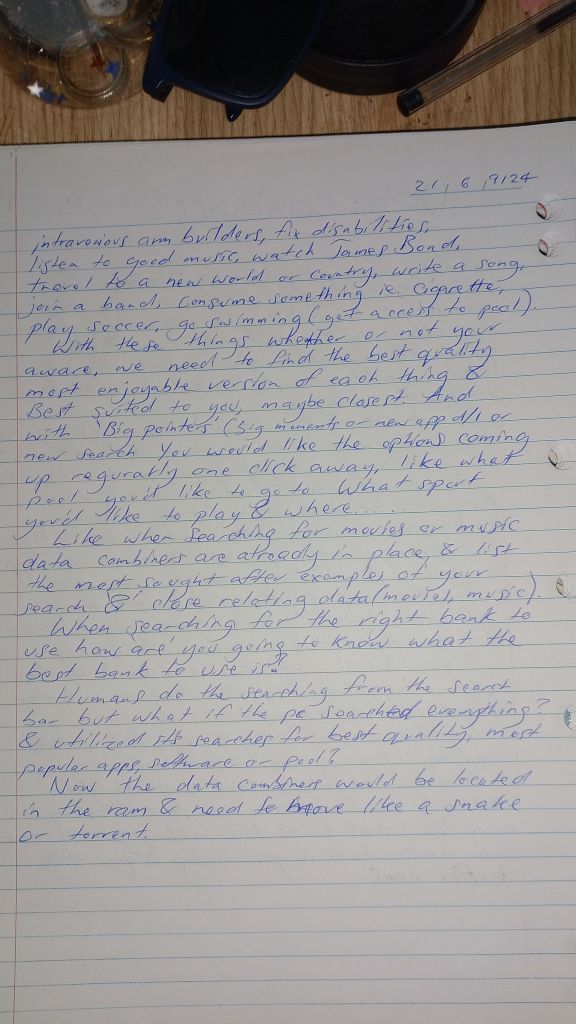 21/6/9124
intravenious arm builders, fix disabilities,
listen to good music, watch James Bond,
travel to a new world or country, write a song,
join a band, consume something ie. cigarette,
play soccer, go swimming (get access to pool).
With these things whether or not your
aware, we need to find the best quality
most enjoyable version of each thing &
Best suited to you, maybe closest. And
with 'Big pointers' (big moments or new app d/l or
new search You would like the options coming
up regurarly one click away, like what
pool you'd like to go to. What sport
you'd like to play & where.....
Like when searching for movies or music
data combiners are already in place & list
the most sought after examples of your
search '&' close relating data (movies, music).
When searching for the right bank to
use how are you going to know what the
best bank to use is?
Humans do the searching from the search
bar but what if the pc searched everything?
& utilized its searches for best quality, most
popular apps, software or pool?
Now the data combiners would be located
in the ram & need to move like a snake
or torrent.